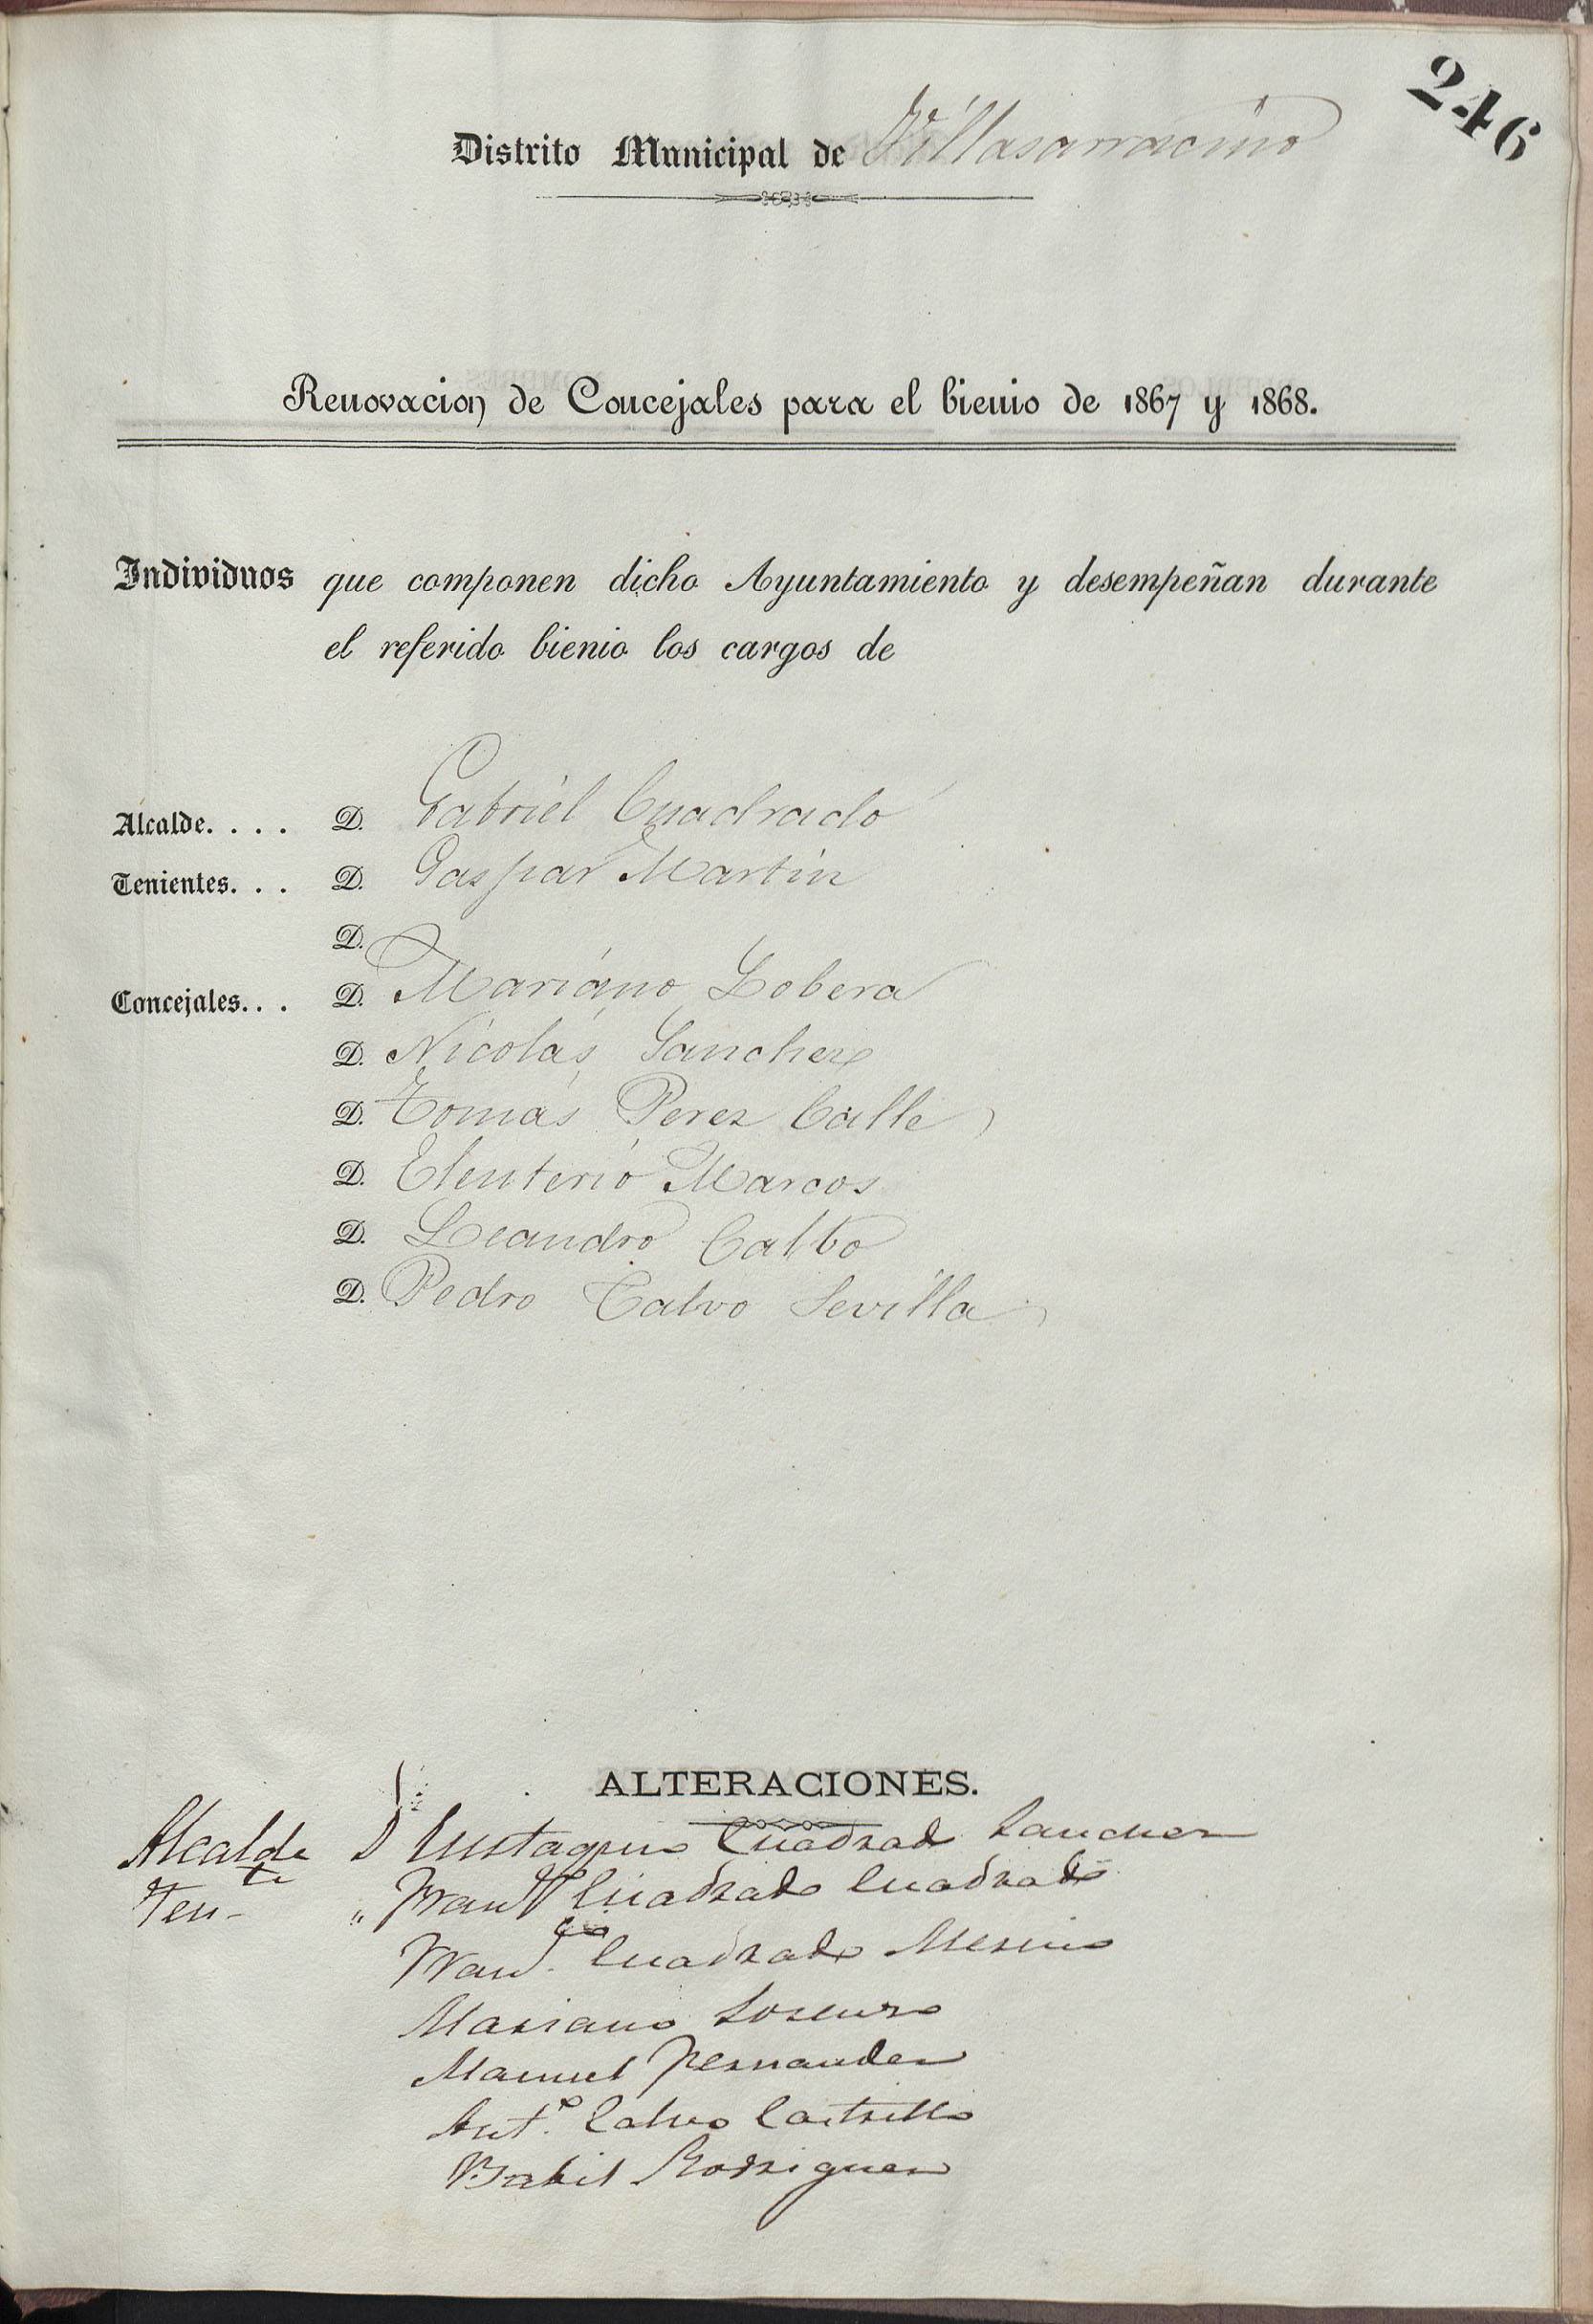 246
Distrito Municipal de Villasarracino
Renovacion de Concejales para el bienio de 1867 y 1868.
Individuos que componen dicho Ayuntamiento y desempeñan durante
el referido bienio los cargos de
Alcalde. . . . D. Gabriel Cuadrado
Tenientes. . . D. Gaspar Martin
D.
Concejales. . . D. Mariano Lobera
D. Nicolás Sanchez
D. Tomás Perez Calle
D. Eleuterio Marcos
D. Leandro Calbo
D. Pedro Calvo Sevilla
ALTERACIONES.
Alcalde D Eustaquio Cuadrado Sanchez
Ten-te " Cuadrado Cuadrado
Cuadrado Merino
Mariano Lorenzo
Manuel Fernandez
Ant.º Calvo Castrillo
Babil Rodriguez